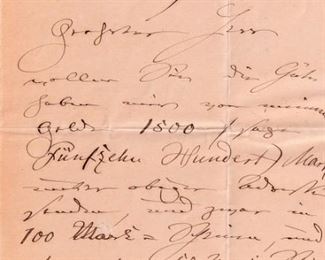 Geehrter Herr
wollen Sie die Güte
haben mir von meinem
Gelde 1500 / sage
Fünfzehn Hundert / Mark
unter obiger Adresse
senden, und zwar in
100 Mark = Scheine, und